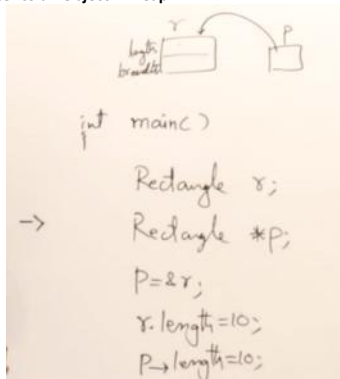 r
p
length
breadth
int main()
{
Rectangle r;
→ Rectangle *p;
p=&r;
r.length=10;
p→length=10;